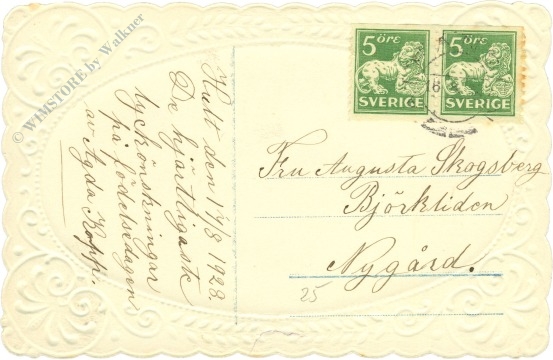 © WIMSTORE by Walkner
Hult den 14/8 1928.
De hjärtligaste
lyckönskningar
på födelsedagen
av Agda Kopp.
5 ÖRE
SVERIGE
5 ÖRE
SVERIGE
Fru Augusta Skogsberg
Björkliden
Nygård.
25